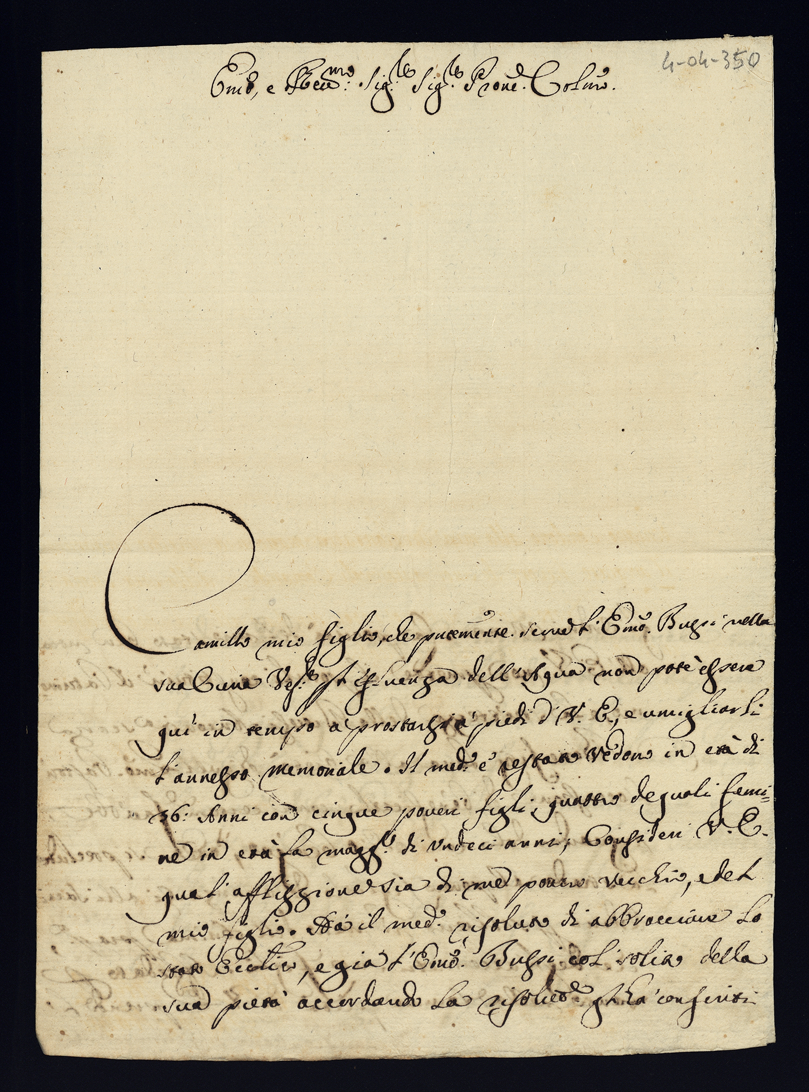 4-04-350
Emo, e Revmo: Sig.re Sig.re Prone. Colmo.
Camillo mio figlio, che serve l'Emo. Bussi nella
sua Curia per l'influenza dell'Aqua non potè essere
quì in tempo a prostarsi a' piedi d'V. E., e umigliarli
l'annesso memoriale. Il med.o è restato Vedovo in età di
36: Anni con cinque poveri figli, quattro de quali femi=
ne in età la magg.re di undeci anni; Consideri V. E.
qual'afflizzione sia di me povero vecchio, e del
mio figlio. Hà il med.o risoluto di abbracciare lo
stato Ecclico, e già l'Emo. Bussi col solito della
sua pietà accordando la gl'hà conferiti